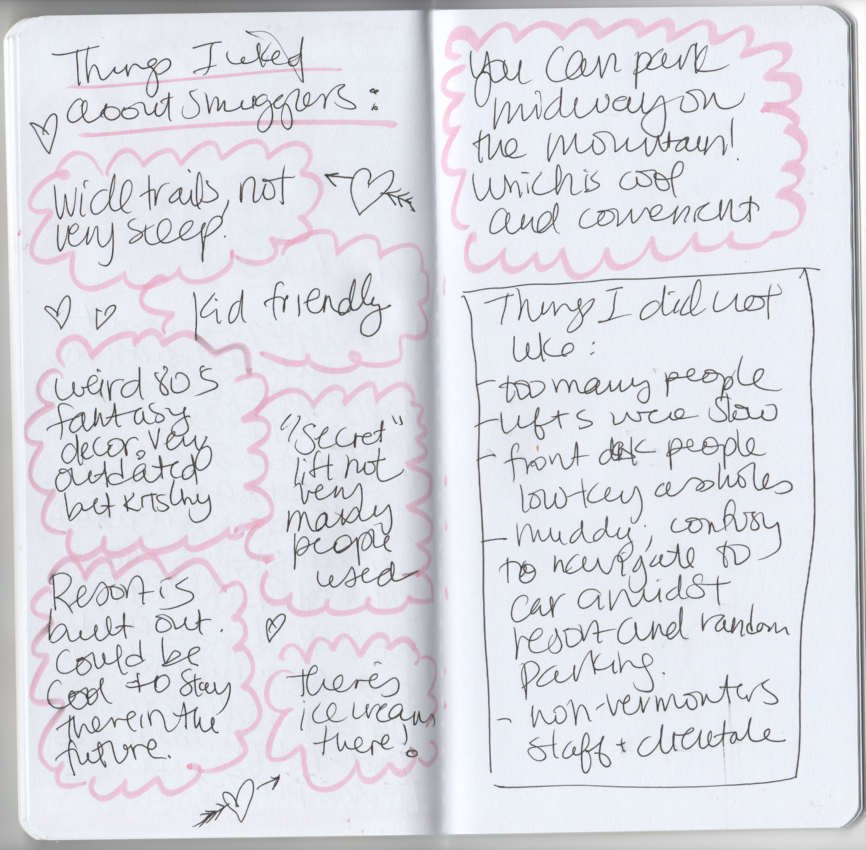 Things I liked
about Smugglers:
Wide trails, not
very steep.
Kid friendly
weird 80s
fantasy
decor. Very
outdated
but kitschy
"Secret"
lift not
very
many
people
used
Resort is
built out.
Could be
cool to stay
there in the
future.
there's
ice cream
there!
You can park
midway on
the mountain!
which is cool
and convenient
Things I did not
like:
- too many people
- lifts were slow
- front desk people
lowkey assholes
- muddy, confusy
to navigate to
car amidst
resort and random
parking.
- non-vermonters
staff + clientale